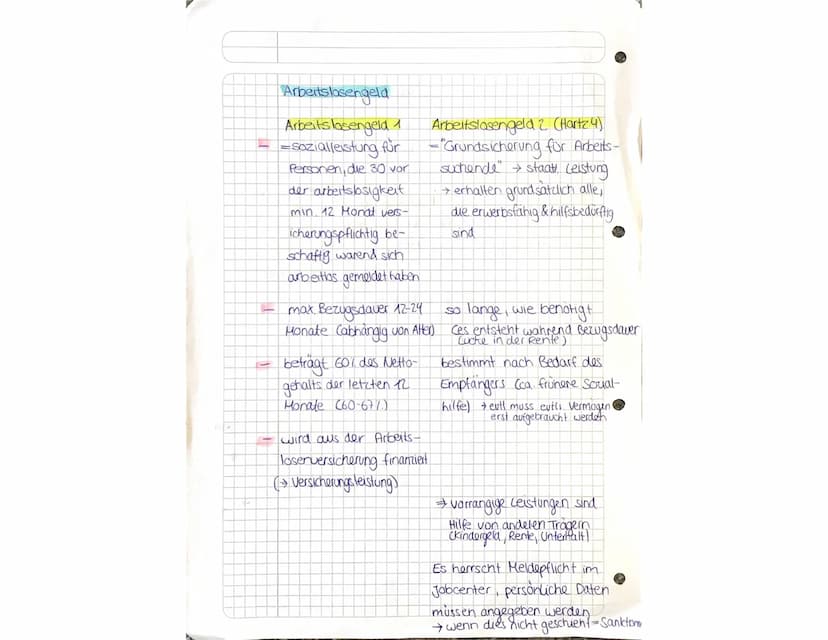 Arbeitslosengeld
Arbeitslosengeld 1
= sozialleistung für
Personen, die 30 vor
der arbeitslosigkeit
min. 12 Monat vers-
icherungspflichtig be-
schäftig warend sich
arbeitlos gemeldet haben
- max. Bezugsdauer 12-24
Monate (abhängig von Alter)
- beträgt 60% des Netto-
gehalts der letzten 12
Monate (60-67%)
- wird aus der Arbeits-
loserversicherung finanziert
(→ Versicherungsleistung)
Arbeitslosengeld 2 (Hartz 4)
= "Grundsicherung für Arbeits-
suchende" → staatl. Leistung
→ erhalten grundsätzlich alle,
die erwerbsfähig & hilfsbedürftig
sind
so lange, wie benötigt
(es entsteht während Bezugsdauer
Lücke in der Rente)
bestimmt nach Bedarf des
Empfängers (ca. frühere Sozial-
hilfe) → evtl muss evtl. Vermögen
erst aufgebraucht werden
⇒ vorrangige Leistungen sind
Hilfe von anderen Trägern
(Kindergeld, Rente, Unterhalt)
Es herrscht Meldepflicht im
Jobcenter, persönliche Daten
müssen angegeben werden
→ wenn dies nicht geschieht = Sanktion